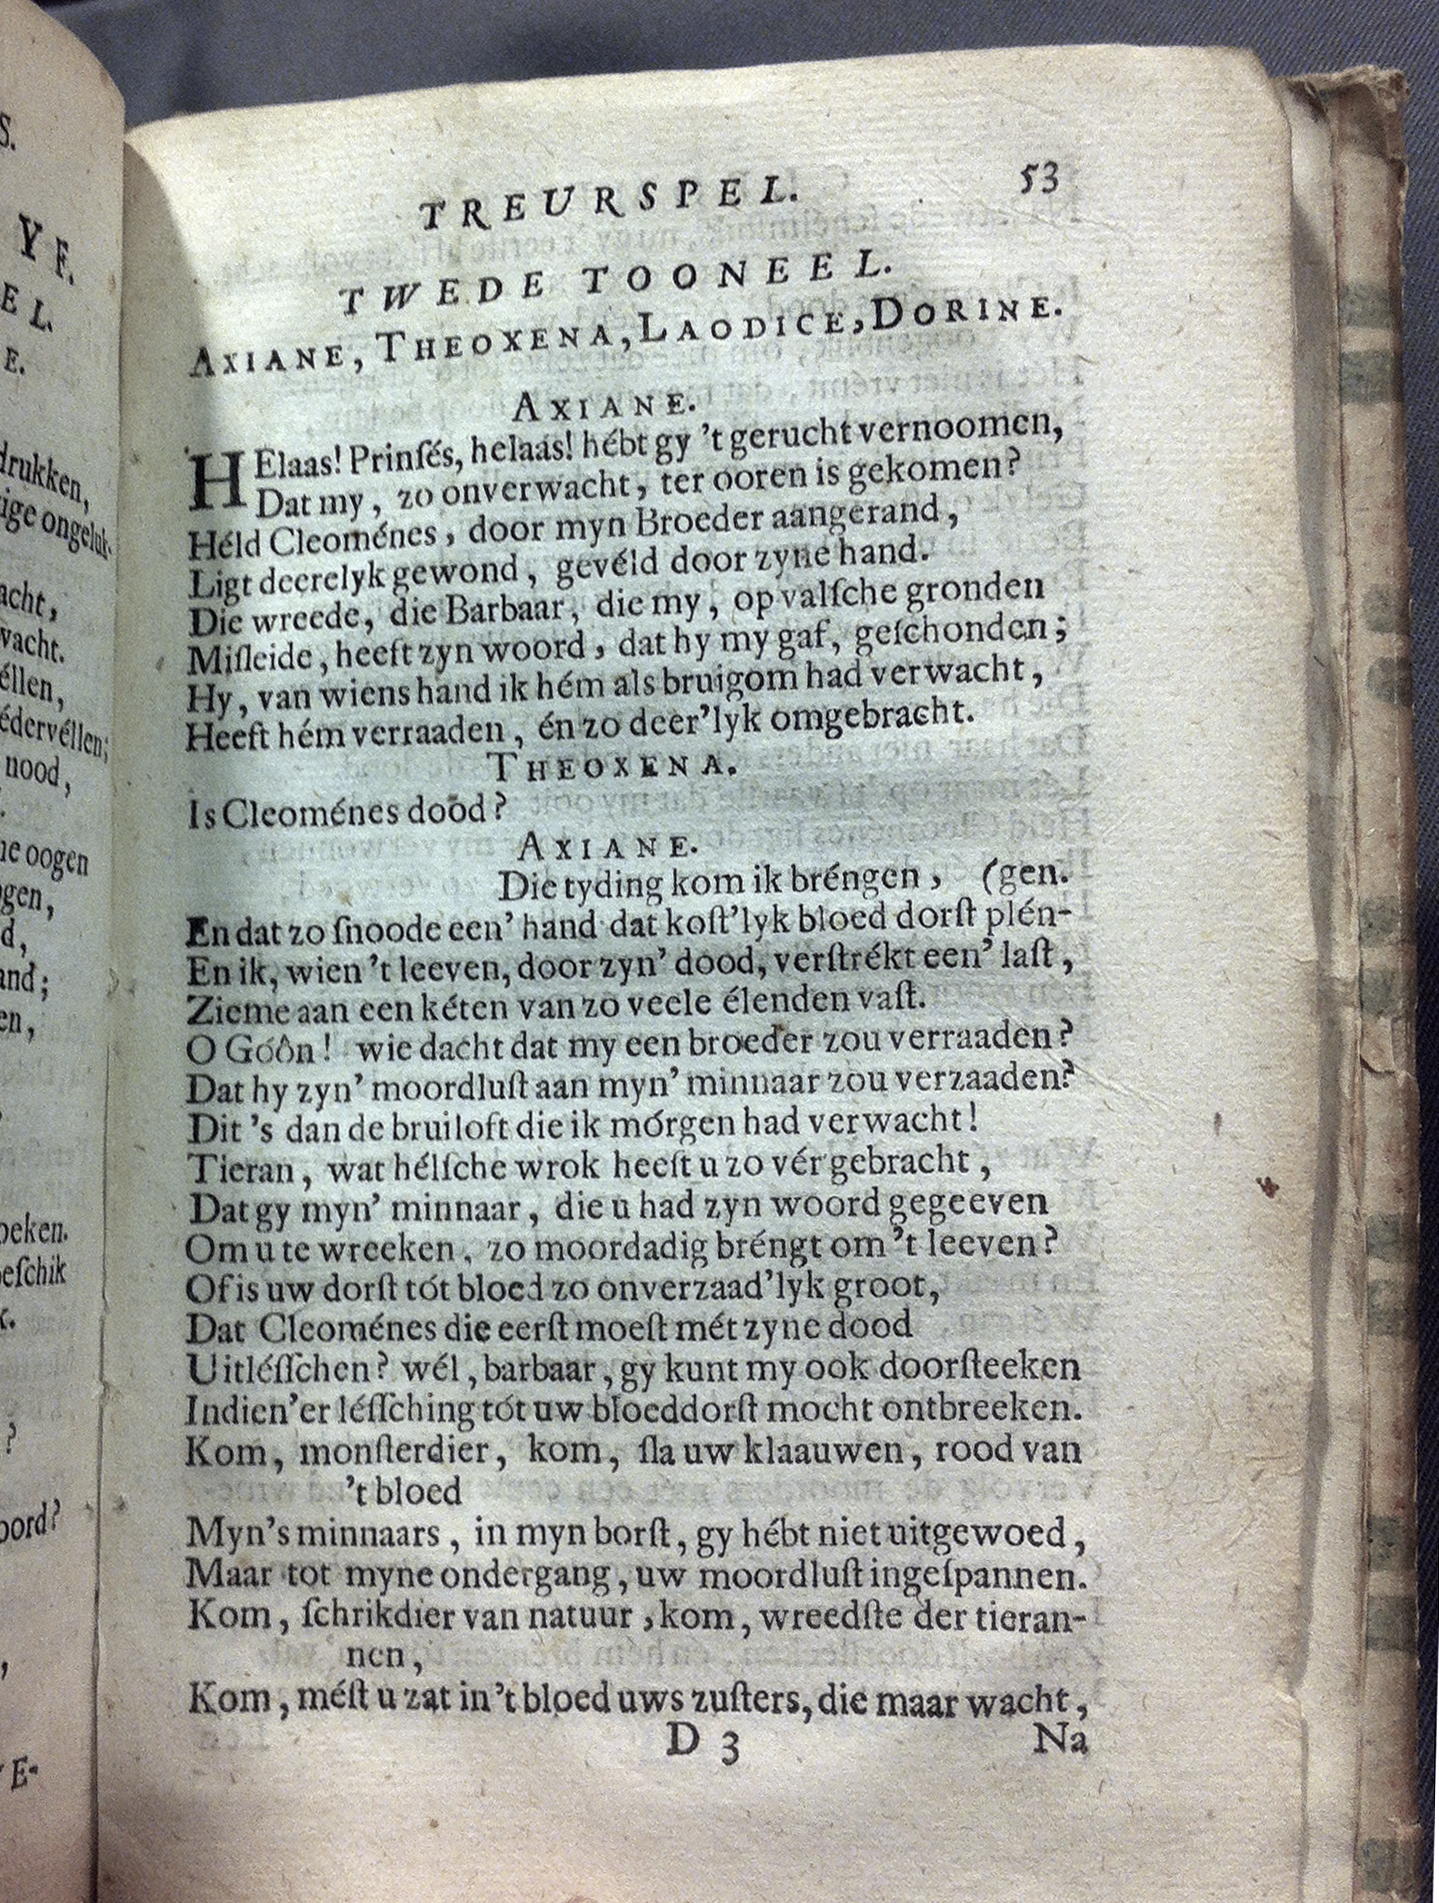 TREURSPEL. 53
TWEDE TOONEEL.
AXIANE, THEOXENA, LAODICE, DORINE.
AXIANE.
HElaas! Prinſés, helaas! hébt gy 't gerucht vernoomen,
Dat my, zo onverwacht, ter ooren is gekomen?
Héld Cleoménes, door myn Broeder aangerand,
Ligt deerelyk gewond, gevéld door zyne hand.
Die wreede, die Barbaar, die my, op valſche gronden
Miſleide, heeft zyn woord, dat hy my gaf, geſchonden;
Hy, van wiens hand ik hém als bruigom had verwacht,
Heeft hém verraaden, én zo deer'lyk omgebracht.
THEOXENA.
Is Cleoménes dood?
AXIANE.
Die tyding kom ik bréngen, (gen.
En dat zo ſnoode een' hand dat koſt'lyk bloed dorſt plén-
En ik, wien 't leeven, door zyn' dood, verſtrékt een' laſt,
Zie me aan een kéten van zo veele élenden vaſt.
O Góôn! wie dacht dat my een broeder zou verraaden?
Dat hy zyn' moordluſt aan myn' minnaar zou verzaaden?
Dit 's dan de bruiloft die ik mórgen had verwacht!
Tieran, wat hélſche wrok heeft u zo vér gebracht,
Dat gy myn' minnaar, die u had zyn woord gegeeven
Om u te wreeken, zo moordadig bréngt om 't leeven?
Of is uw dorſt tót bloed zo onverzaad'lyk groot,
Dat Cleoménes die eerſt moeſt mét zyne dood
Uitléſſchen? wél, barbaar, gy kunt my ook doorſteeken
Indien'er léſſching tót uw bloeddorſt mocht ontbreeken.
Kom, monſterdier, kom, ſla uw klaauwen, rood van
't bloed
Myn's minnaars, in myn borſt, gy hébt niet uitgewoed,
Maar tot myne ondergang, uw moordluſt ingeſpannen.
Kom, ſchrikdier van natuur, kom, wreedſte der tieran-
nen,
Kom, méſt u zat in 't bloed uws zuſters, die maar wacht,
D 3 Na